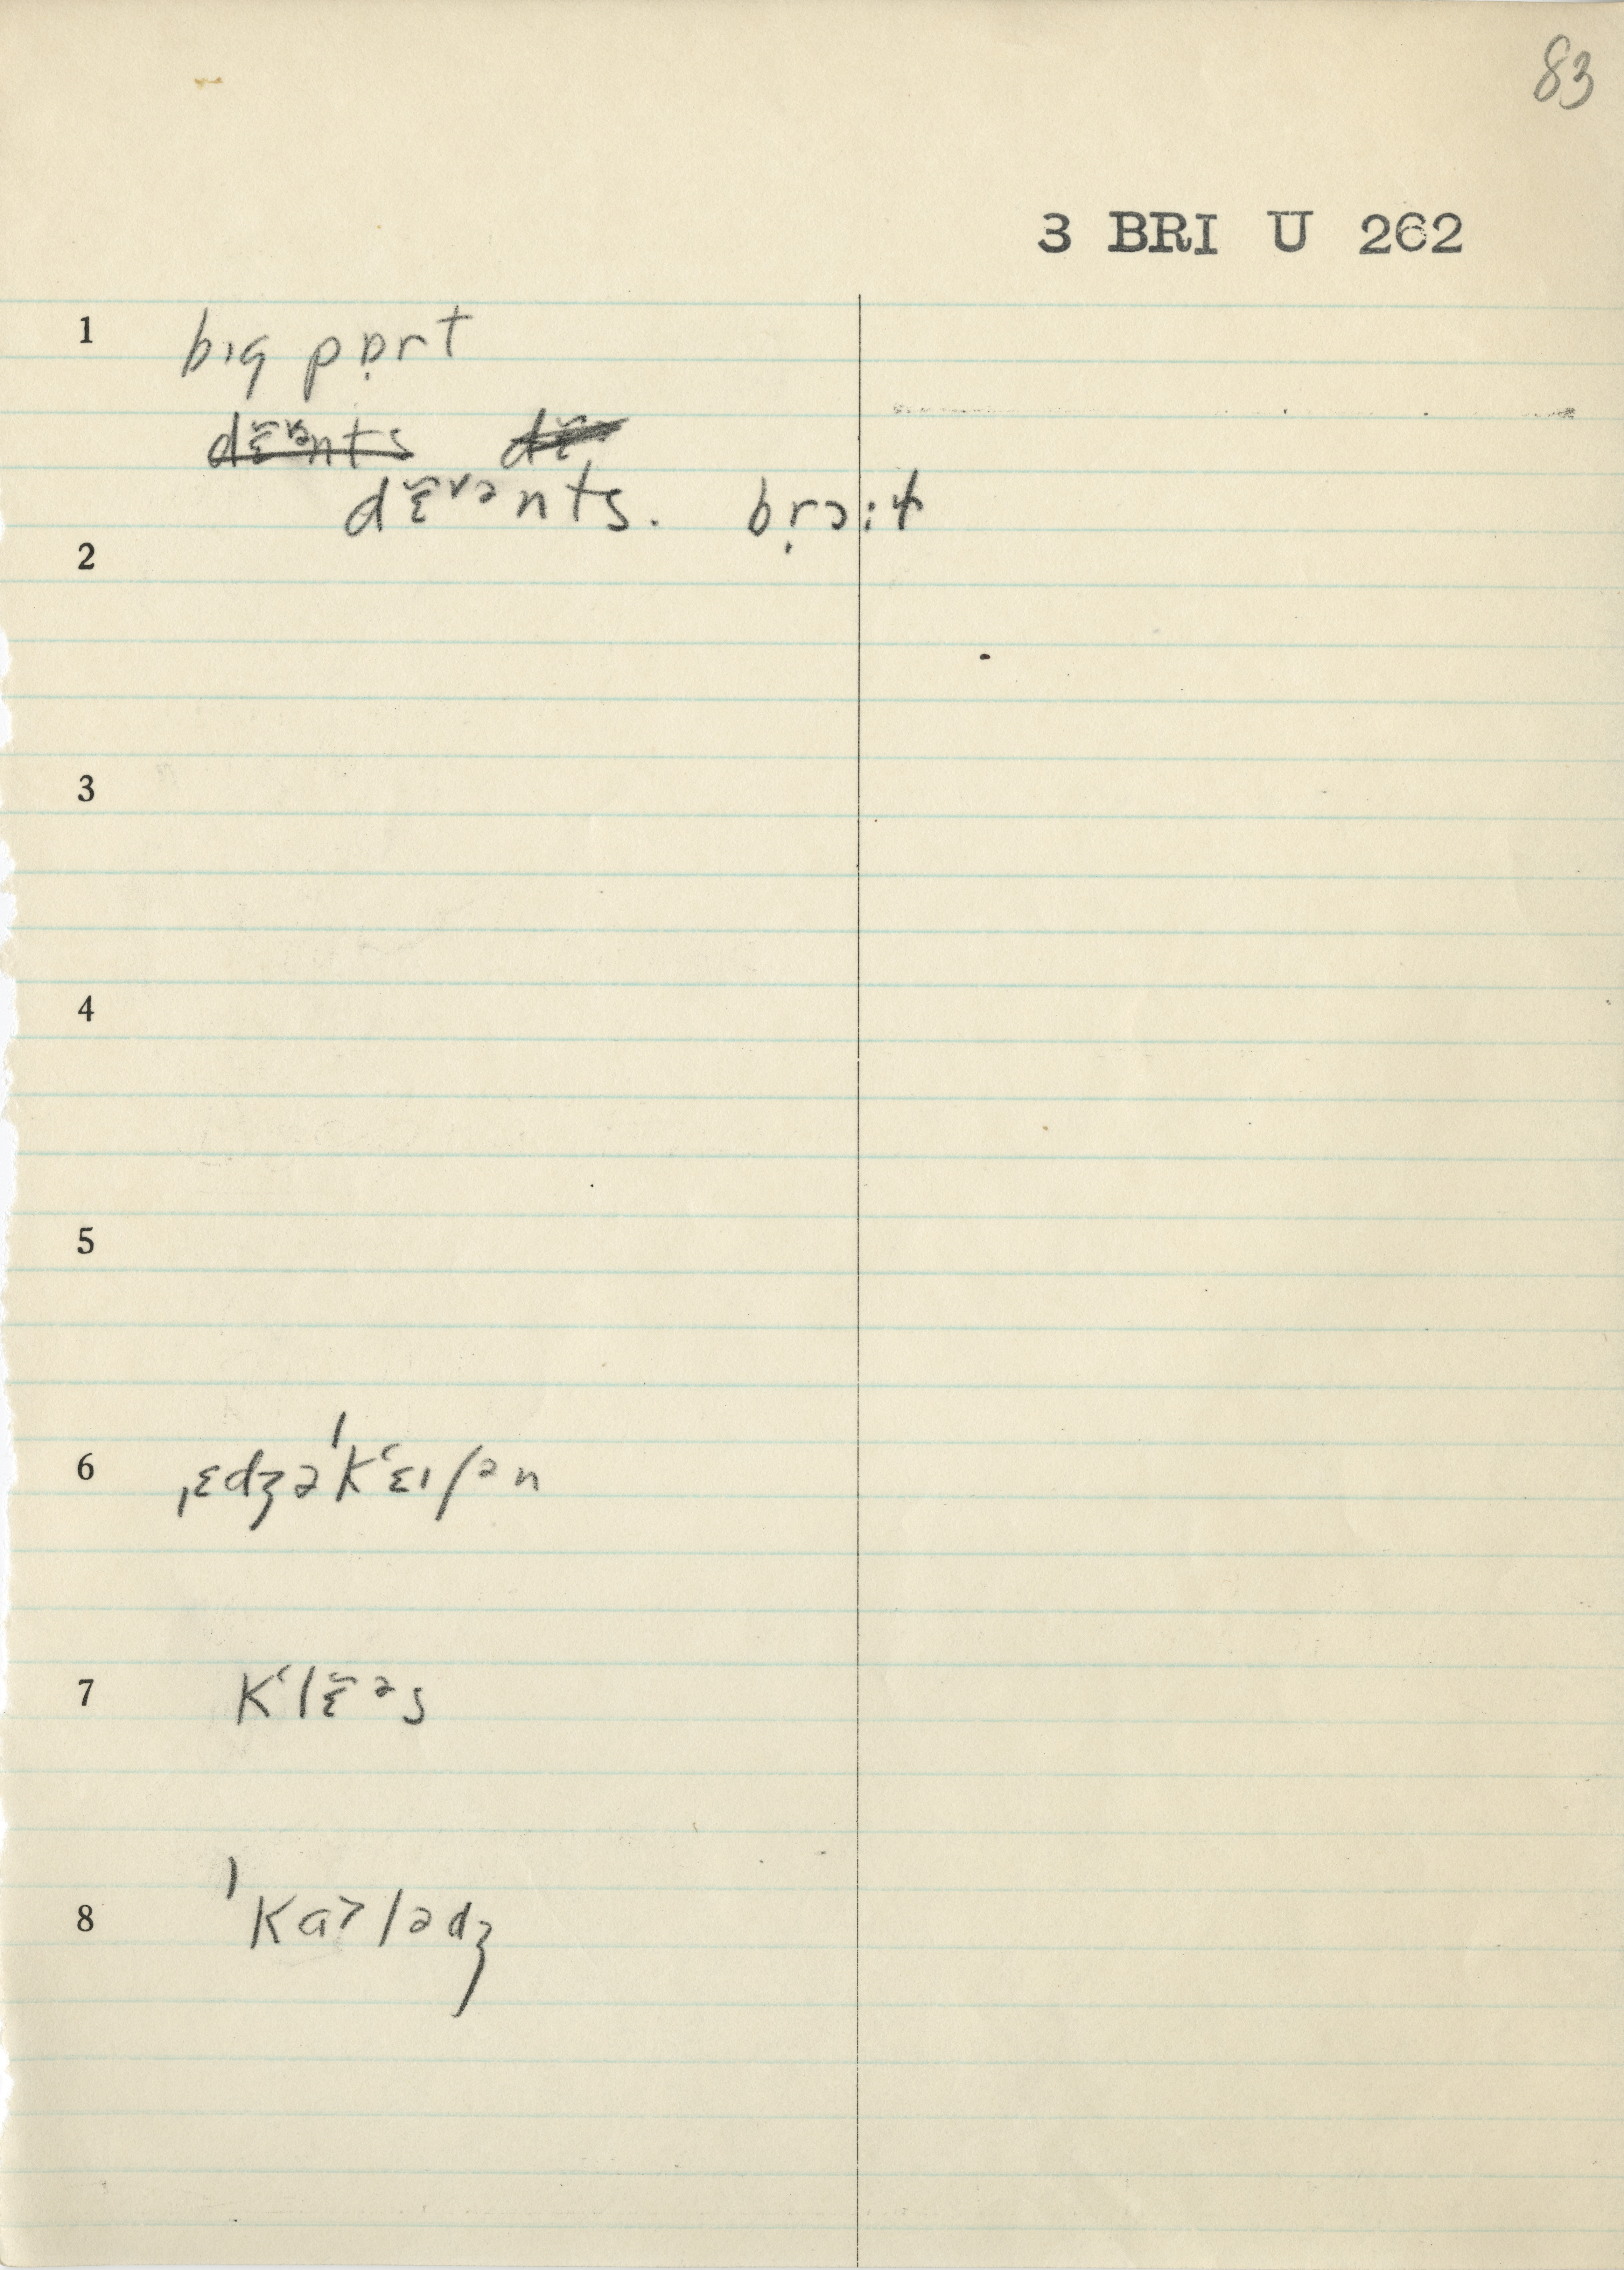 83
3 BRI U 262
1 bɪg pɒ̣rt
dɛ̆ᵛᵊnts dɛ̆
dɛ̆ᵛᵊnts. brɔ̣:t
2
3
4
5
6 ˌɛdʒəˈkʻɛɪʃən
7 kʻlɛ̆ᵊs
8 ˈkɑ˃lədʒ